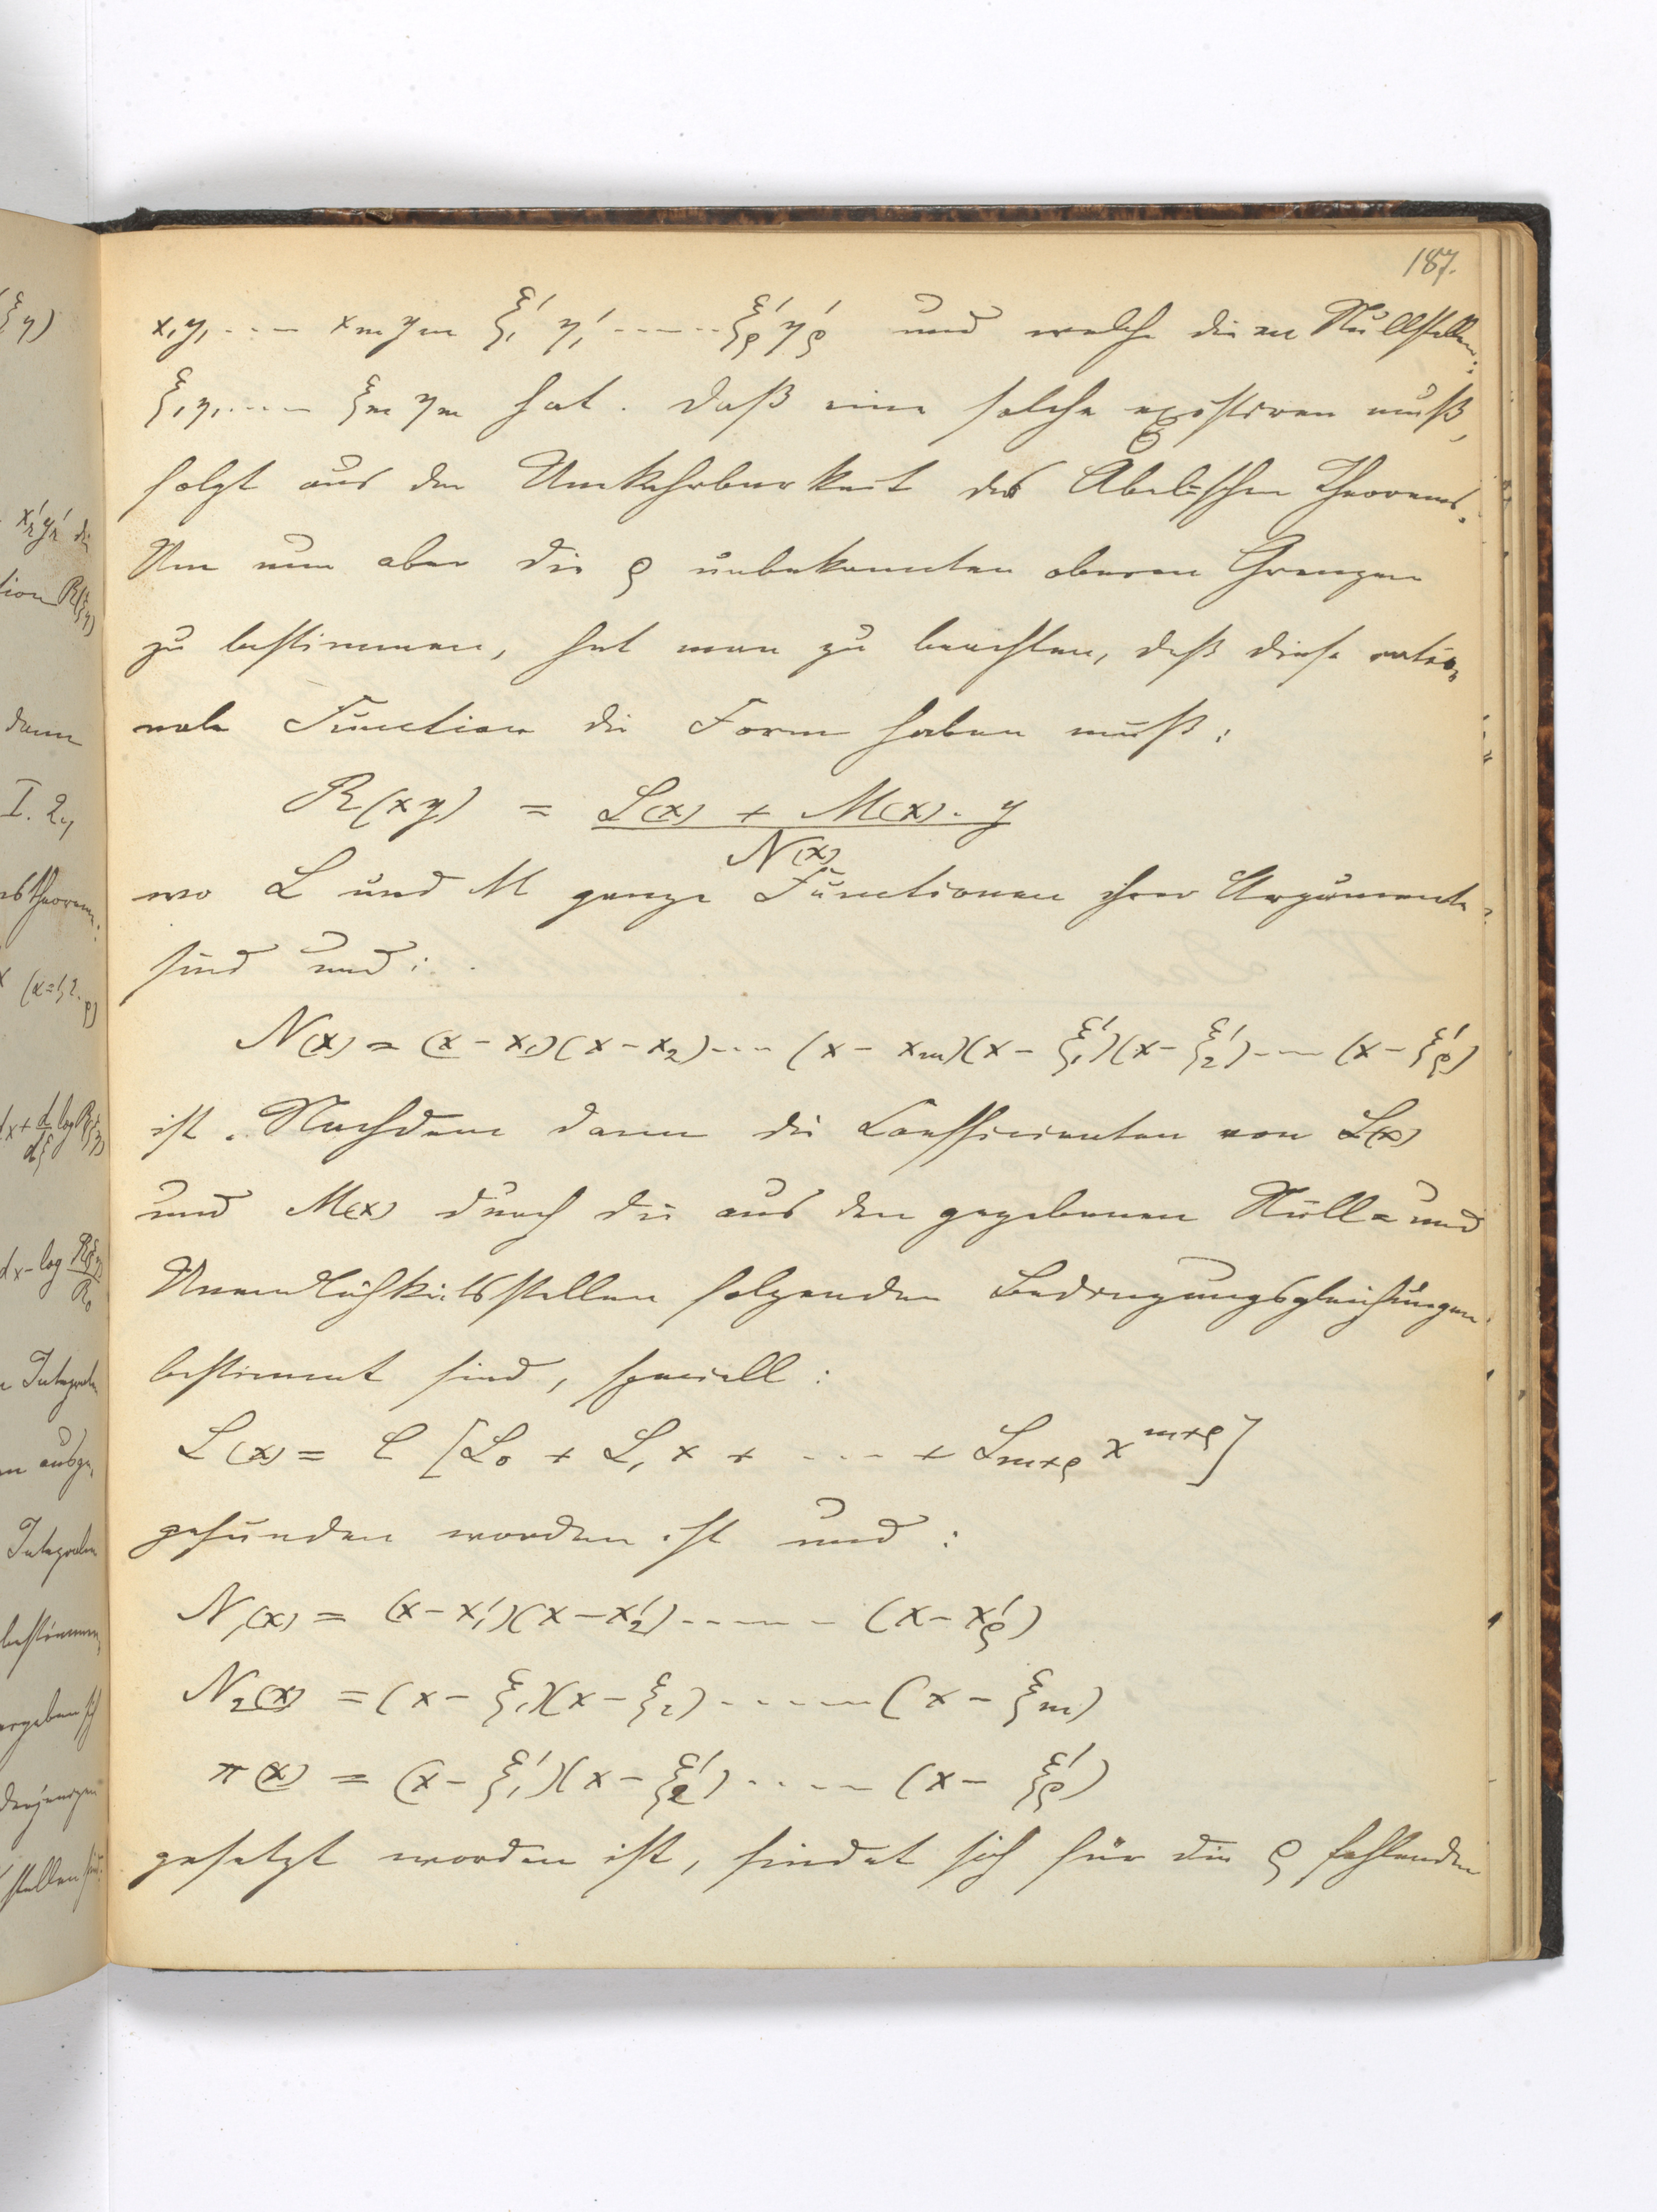 187.
x₁y₁ ---- xₘyₘ ξ₁' η₁' ------ ξ'ρ η'ρ und welche die m Nullstellen:
ξ₁η₁ ---- ξₘ ηₘ hat. Daß eine solche existiren muß,
folgt aus der Umkehrbarkeit des Abelschen Theorems.
Um nun aber die ρ unbekannten oberen Grenzen
zu bestimmen, hat man zu beachten, daß diese ratio-
nale Function die Form haben muß:
R(xy) = L(x) + M(x). y
N(x)
wo L und M ganze Functionen ihrer Argumente
sind und:
N(x) = (x - x₁)(x - x₂) --- (x - xₘ)(x - ξ₁')(x - ξ₂') ---- (x - ξ'ρ)
ist. Nachdem dann die Coefficienten von L(x)
und M(x) durch die aus den gegebenen Null= und
Unendlichkeitsstellen folgenden Bedingungsgleichungen
bestimmt sind, speciell:
L(x) = C [L₀ + L₁ x + ---- + Lₘ₊ρ x^{m+ρ}]
gefunden worden ist und:
N₁(x) = (x - x₁')(x - x₂') ------ (x - x'ρ)
N₂(x) = (x - ξ₁)(x - ξ₂) ------ (x - ξₘ)
π(x) = (x - ξ₁')(x - ξ₂') ----- (x - ξ'ρ)
gesetzt worden ist, findet sich für die ρ fehlenden
ξη)
x₂'y₂' die
tion R(ξη)
dann
I. 2,
(α=1,2..ρ)
dx + d/dξ log R(ξη)
dx - log R(ξη)/R₀
Integrale
ausge-
Integralen
bestimmen,
ergeben sich
derjenigen
stellen sind.